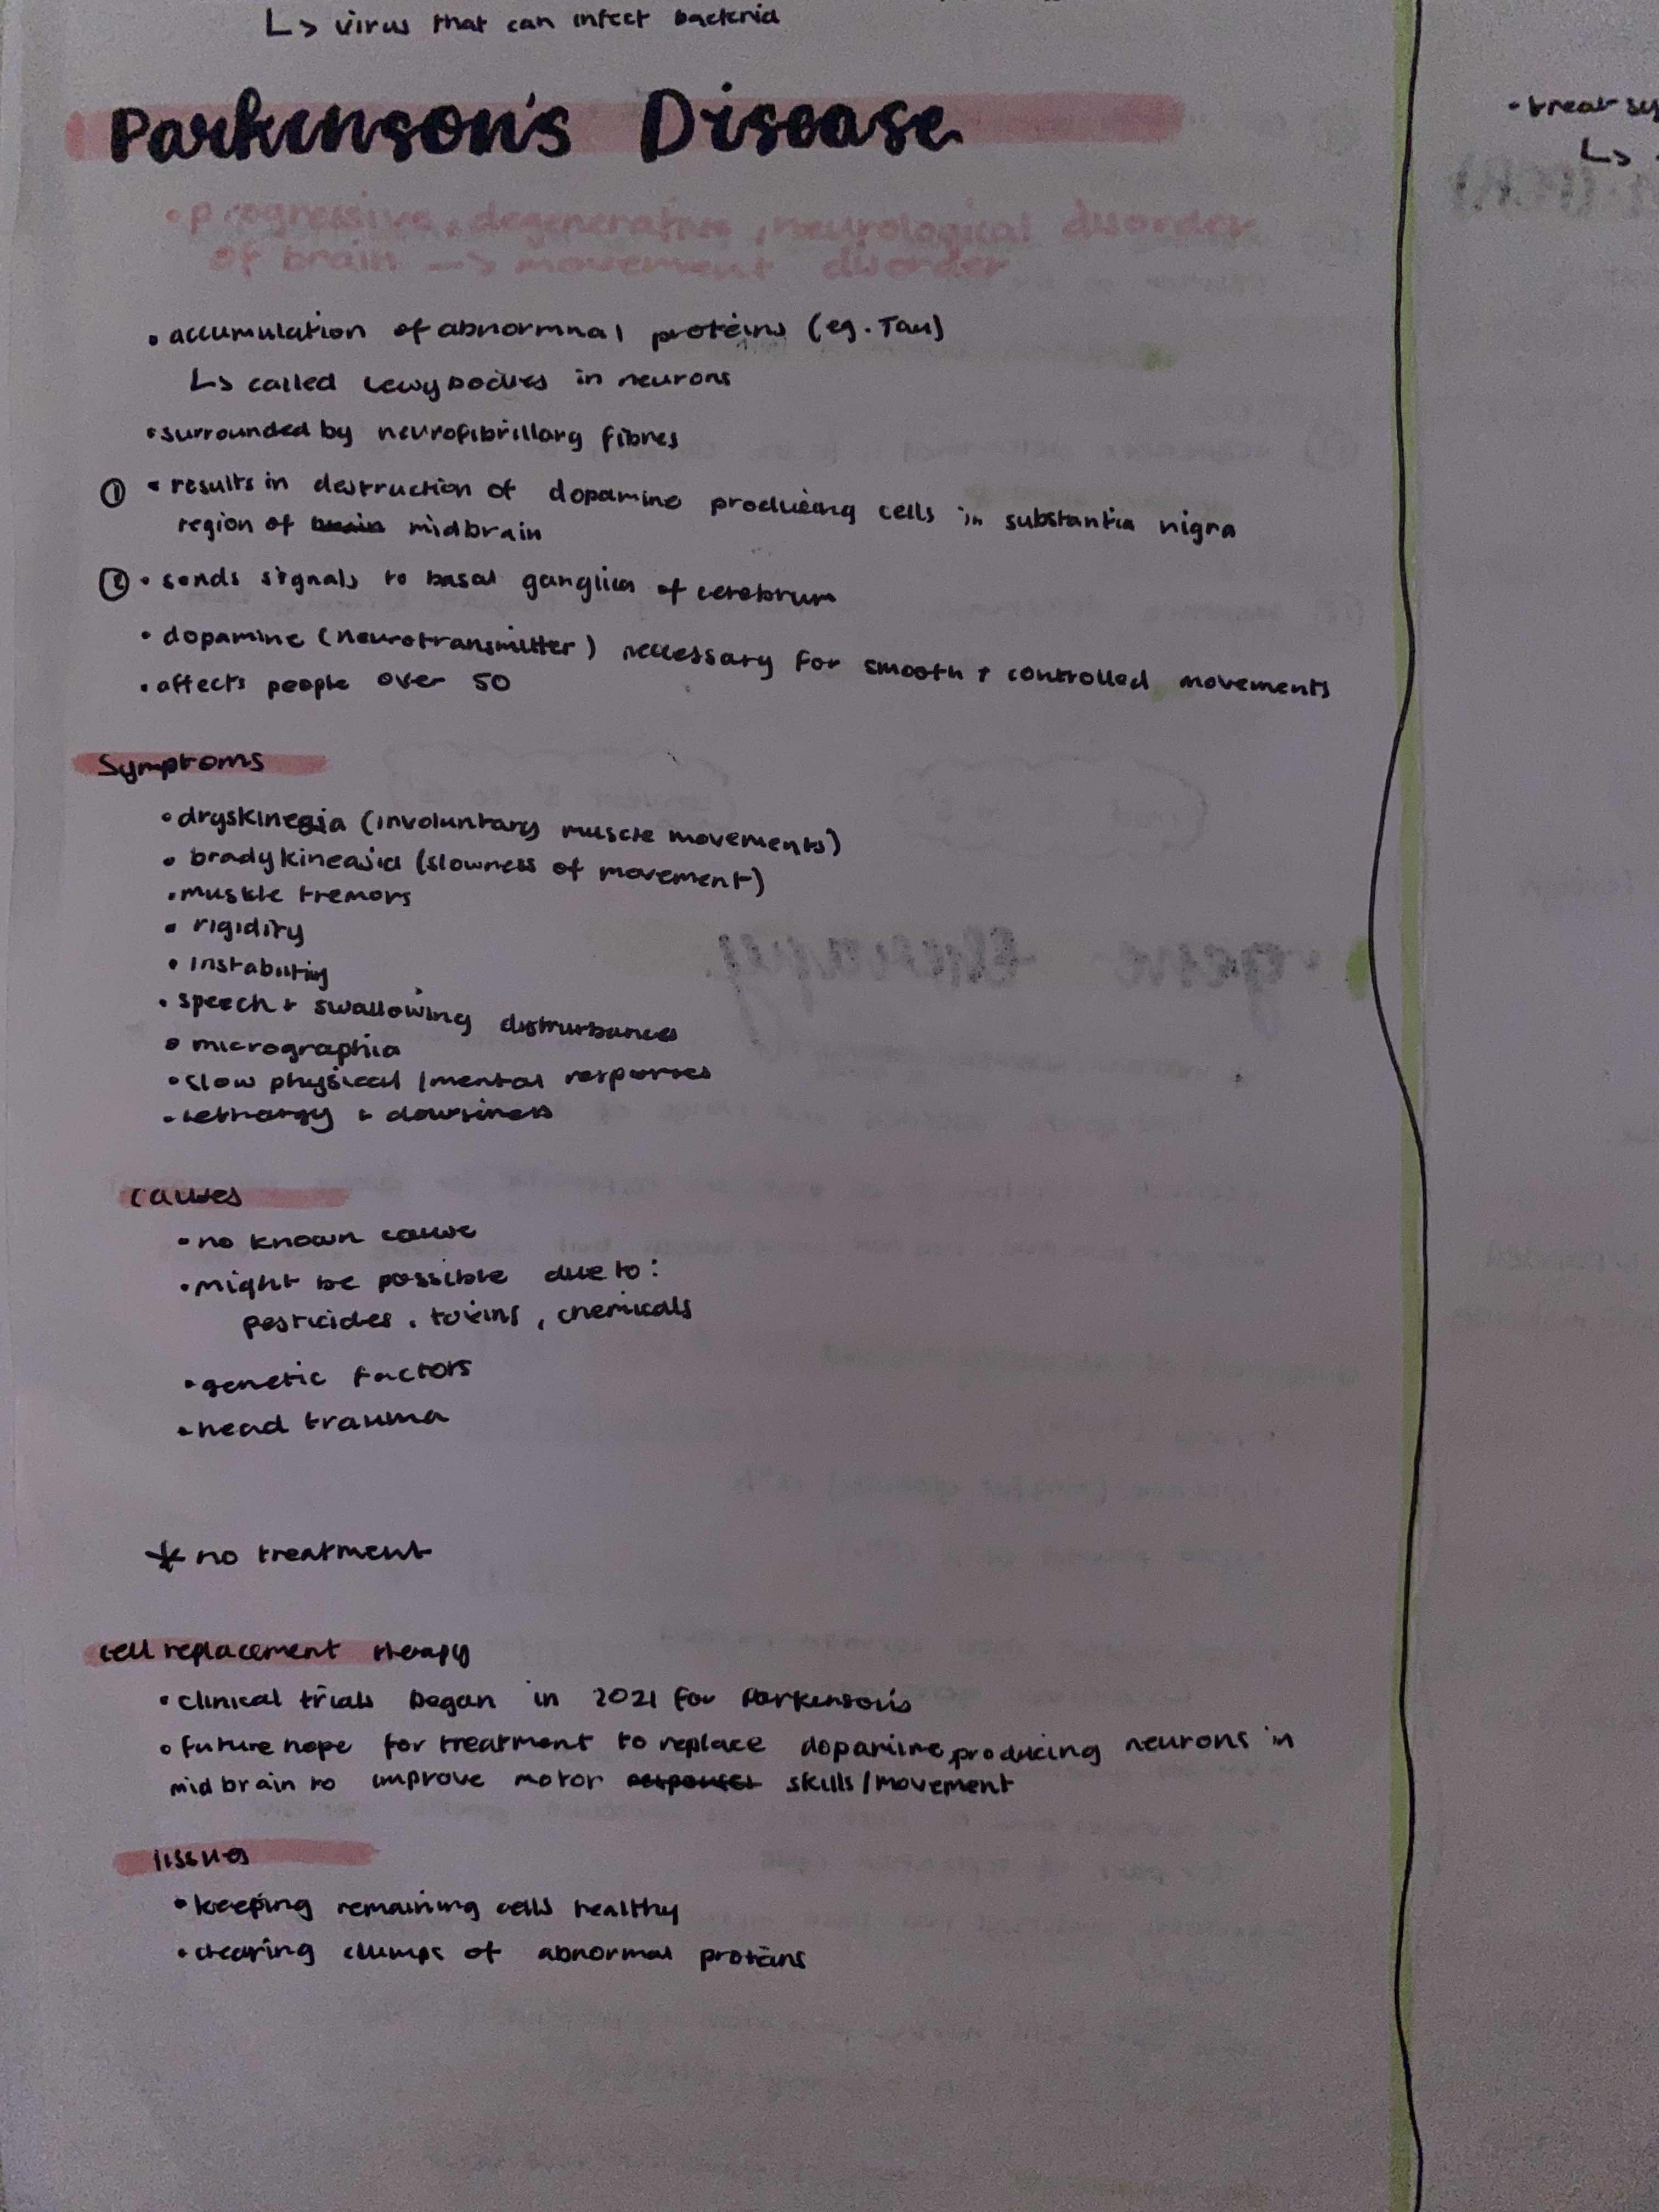 ↳ virus that can infect bacteria
Parkinson's Disease
• treat
↳
• progressive, degenerative, neurological disorder
of brain —> movement disorder
• accumulation of abnormnal proteins (eg. Tau)
↳ called Lewy bodies in neurons
• surrounded by neurofibrillary fibres
① • results in destruction of dopamine producing cells in substantia nigra
region of brain midbrain
② • sends signals to basal ganglia of cerebrum
• dopamine (neurotransmitter) necessary for smooth + controlled movements
• affects people over 50
Symptoms
• dryskinesia (involuntary muscle movements)
• bradykineasia (slowness of movement)
• muskle tremors
• rigidity
• instability
• speech + swallowing disturbances
• micrographia
• slow physical / mental responses
• lethargy + dowsiness
causes
• no known cause
• might be possible due to:
pesticides, toxins, chemicals
• genetic factors
• head trauma
* no treatment
cell replacement therapy
• clinical trials began in 2021 for Parkinson's
• future hope for treatment to replace dopamine producing neurons in
midbrain to improve motor responses skills/movement
issues
• keeping remaining cells healthy
• clearing clumps of abnormal proteins